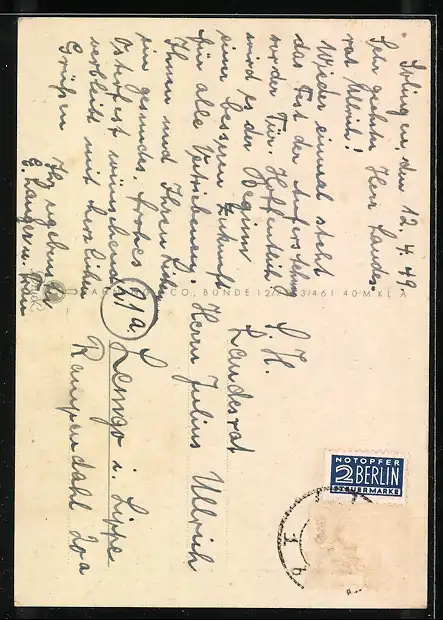 Solingen, den 12.4.49.
Sehr geehrter Herr Landes-
rat Ullrich!
Wieder einmal steht
das Fest der Auferstehung
vor der Tür. Hoffentlich
wird es der Beginn
einer besseren Zukunft
für alle Vertriebenen.
Ihnen und Ihren Lieben
ein gesundes, frohes
Osterfest wünschend
verbleibt mit herzlichen
Grüßen Ihr ergebener
E. Langer u. Frau
CO., BÜNDE 12/ 3/461 40M KL A
S. H.
Landesrat
Herrn Julius Ullrich
21a Lemgo i. Lippe
Rampendahl 20a
NOTOPFER
2 BERLIN
STEUERMARKE